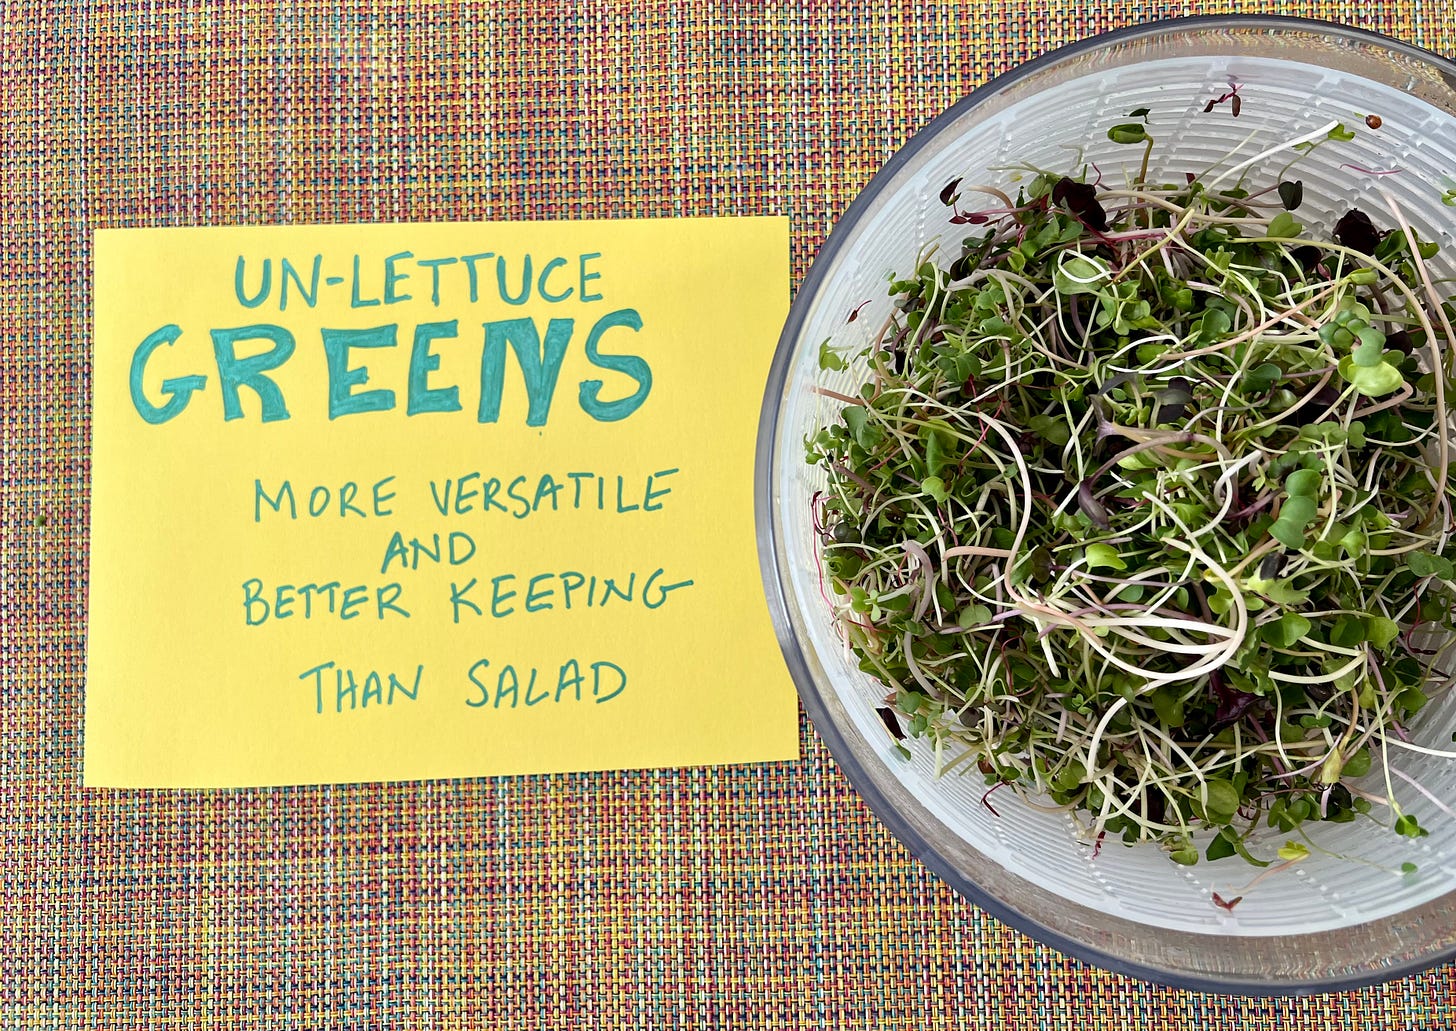 UN-LETTUCE
GREENS
MORE VERSATILE
AND
BETTER KEEPING
THAN SALAD